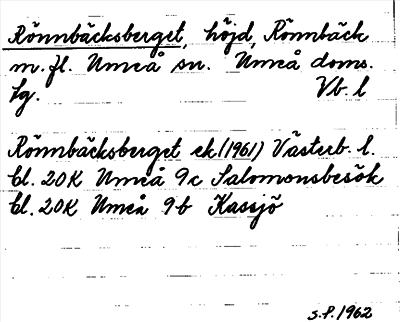 Rönnbäcksberget, höjd, Rönnbäck
m.fl. Umeå sn. Umeå doms.
lg. Vb. l
Rönnbäcksberget ek. (1961) Västerb. l.
bl. 20K Umeå 9c Salomonsbesök
bl. 20K Umeå 9b Kassjö
S.F. 1962